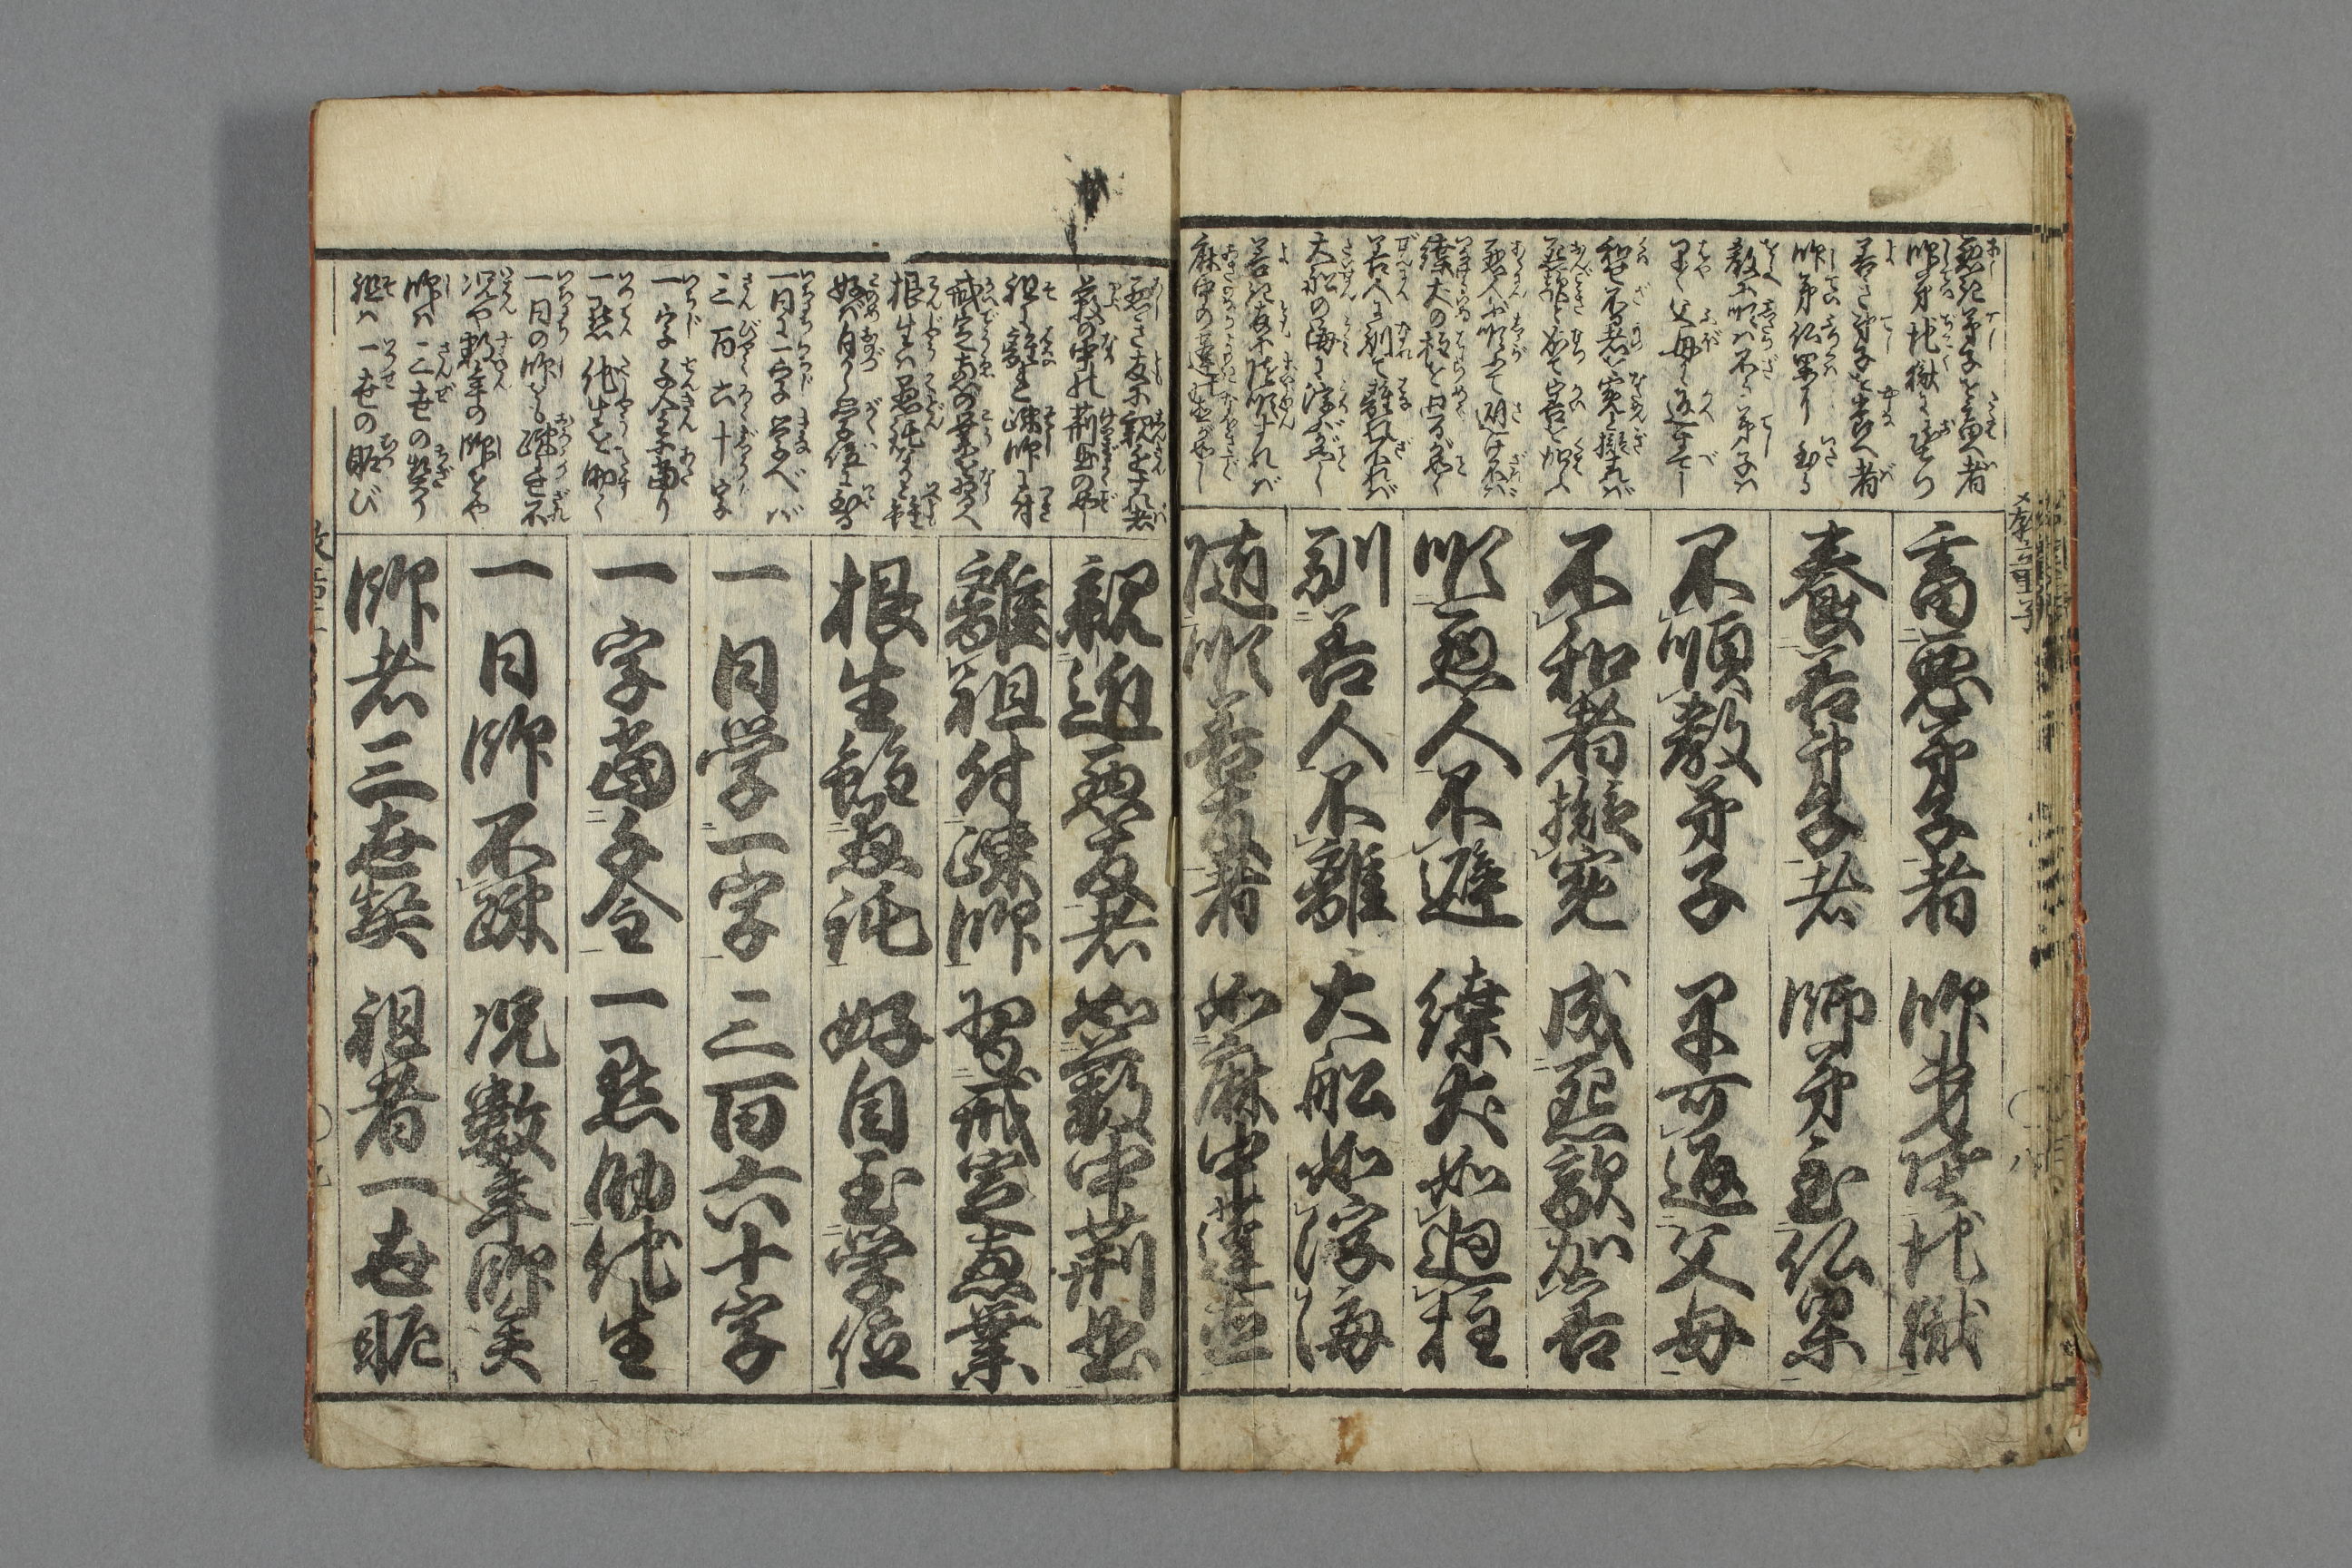 悪き弟子を畜へ者
師弟地獄に堕つ
善き弟子を養へ者
師弟仏果に至る
教に順は不る弟子は
早く父母に返すべし
和せ不る者を冤と擬すれば
怨敵と成て害を加ふ
悪人に順ふて避け不れば
緤犬の柱を廻るが如く
善人に馴て離れ不れば
大船の海に浮ぶが如し
善き友に随順すれば
麻中の蓬の直が如し
畜悪弟子者 師弟堕地獄
養善弟子者 師弟至仏果
不順教弟子 早可返父母
不和者擬冤 成怨敵加害
順悪人不避 緤犬如廻柱
馴善人不離 大船如浮海
随順善友者 如麻中蓬直
悪き友に親近すれば
藪の中の荊曲の如し
祖を離れ疎師に付
戒定恵の業を習へ
根生は愚鈍なりと雖
好めば自ら学位に至る
一日に一字学べば
三百六十字
一字千金に当り
一點他生を助く
一日の師をも疎か不れ
况や数年の師をや
師は三世の契り
祖は一世の昵び
親近悪友者 如藪中荊曲
離祖付疎師 習戒定恵業
根生雖愚鈍 好自至学位
一日学一字 三百六十字
一字當千金 一點助他生
一日師不疎 况数年師矣
師者三世契 祖者一世昵